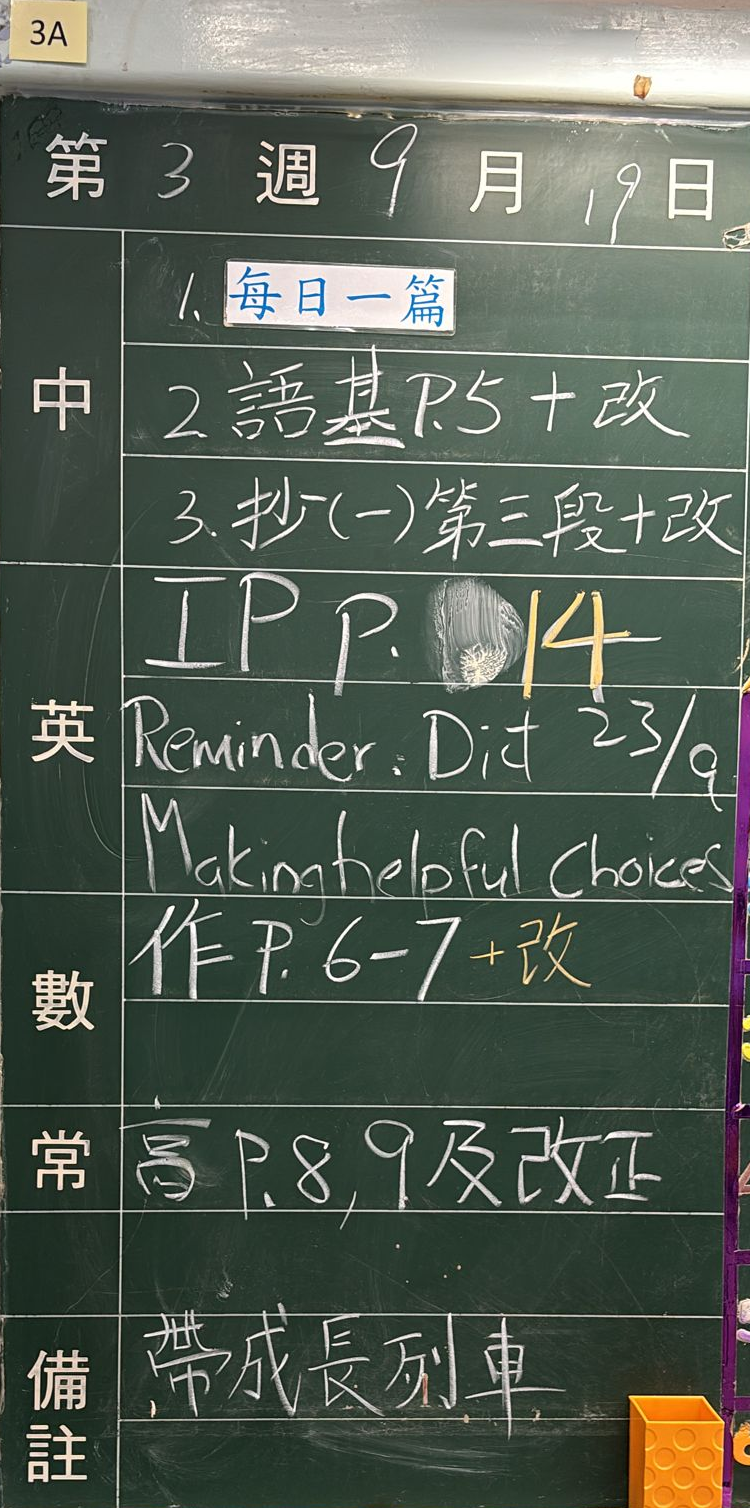 3A
第 3 週 9 月 19 日
中
1. 每日一篇
2. 語基 P.5 + 改
3. 抄(一)第三段+改
英
IP P. 14
Reminder: Dict 23/9
Making helpful choices
數
作 P. 6-7 + 改
常
P.8,9 及改正
備註
帶成長列車